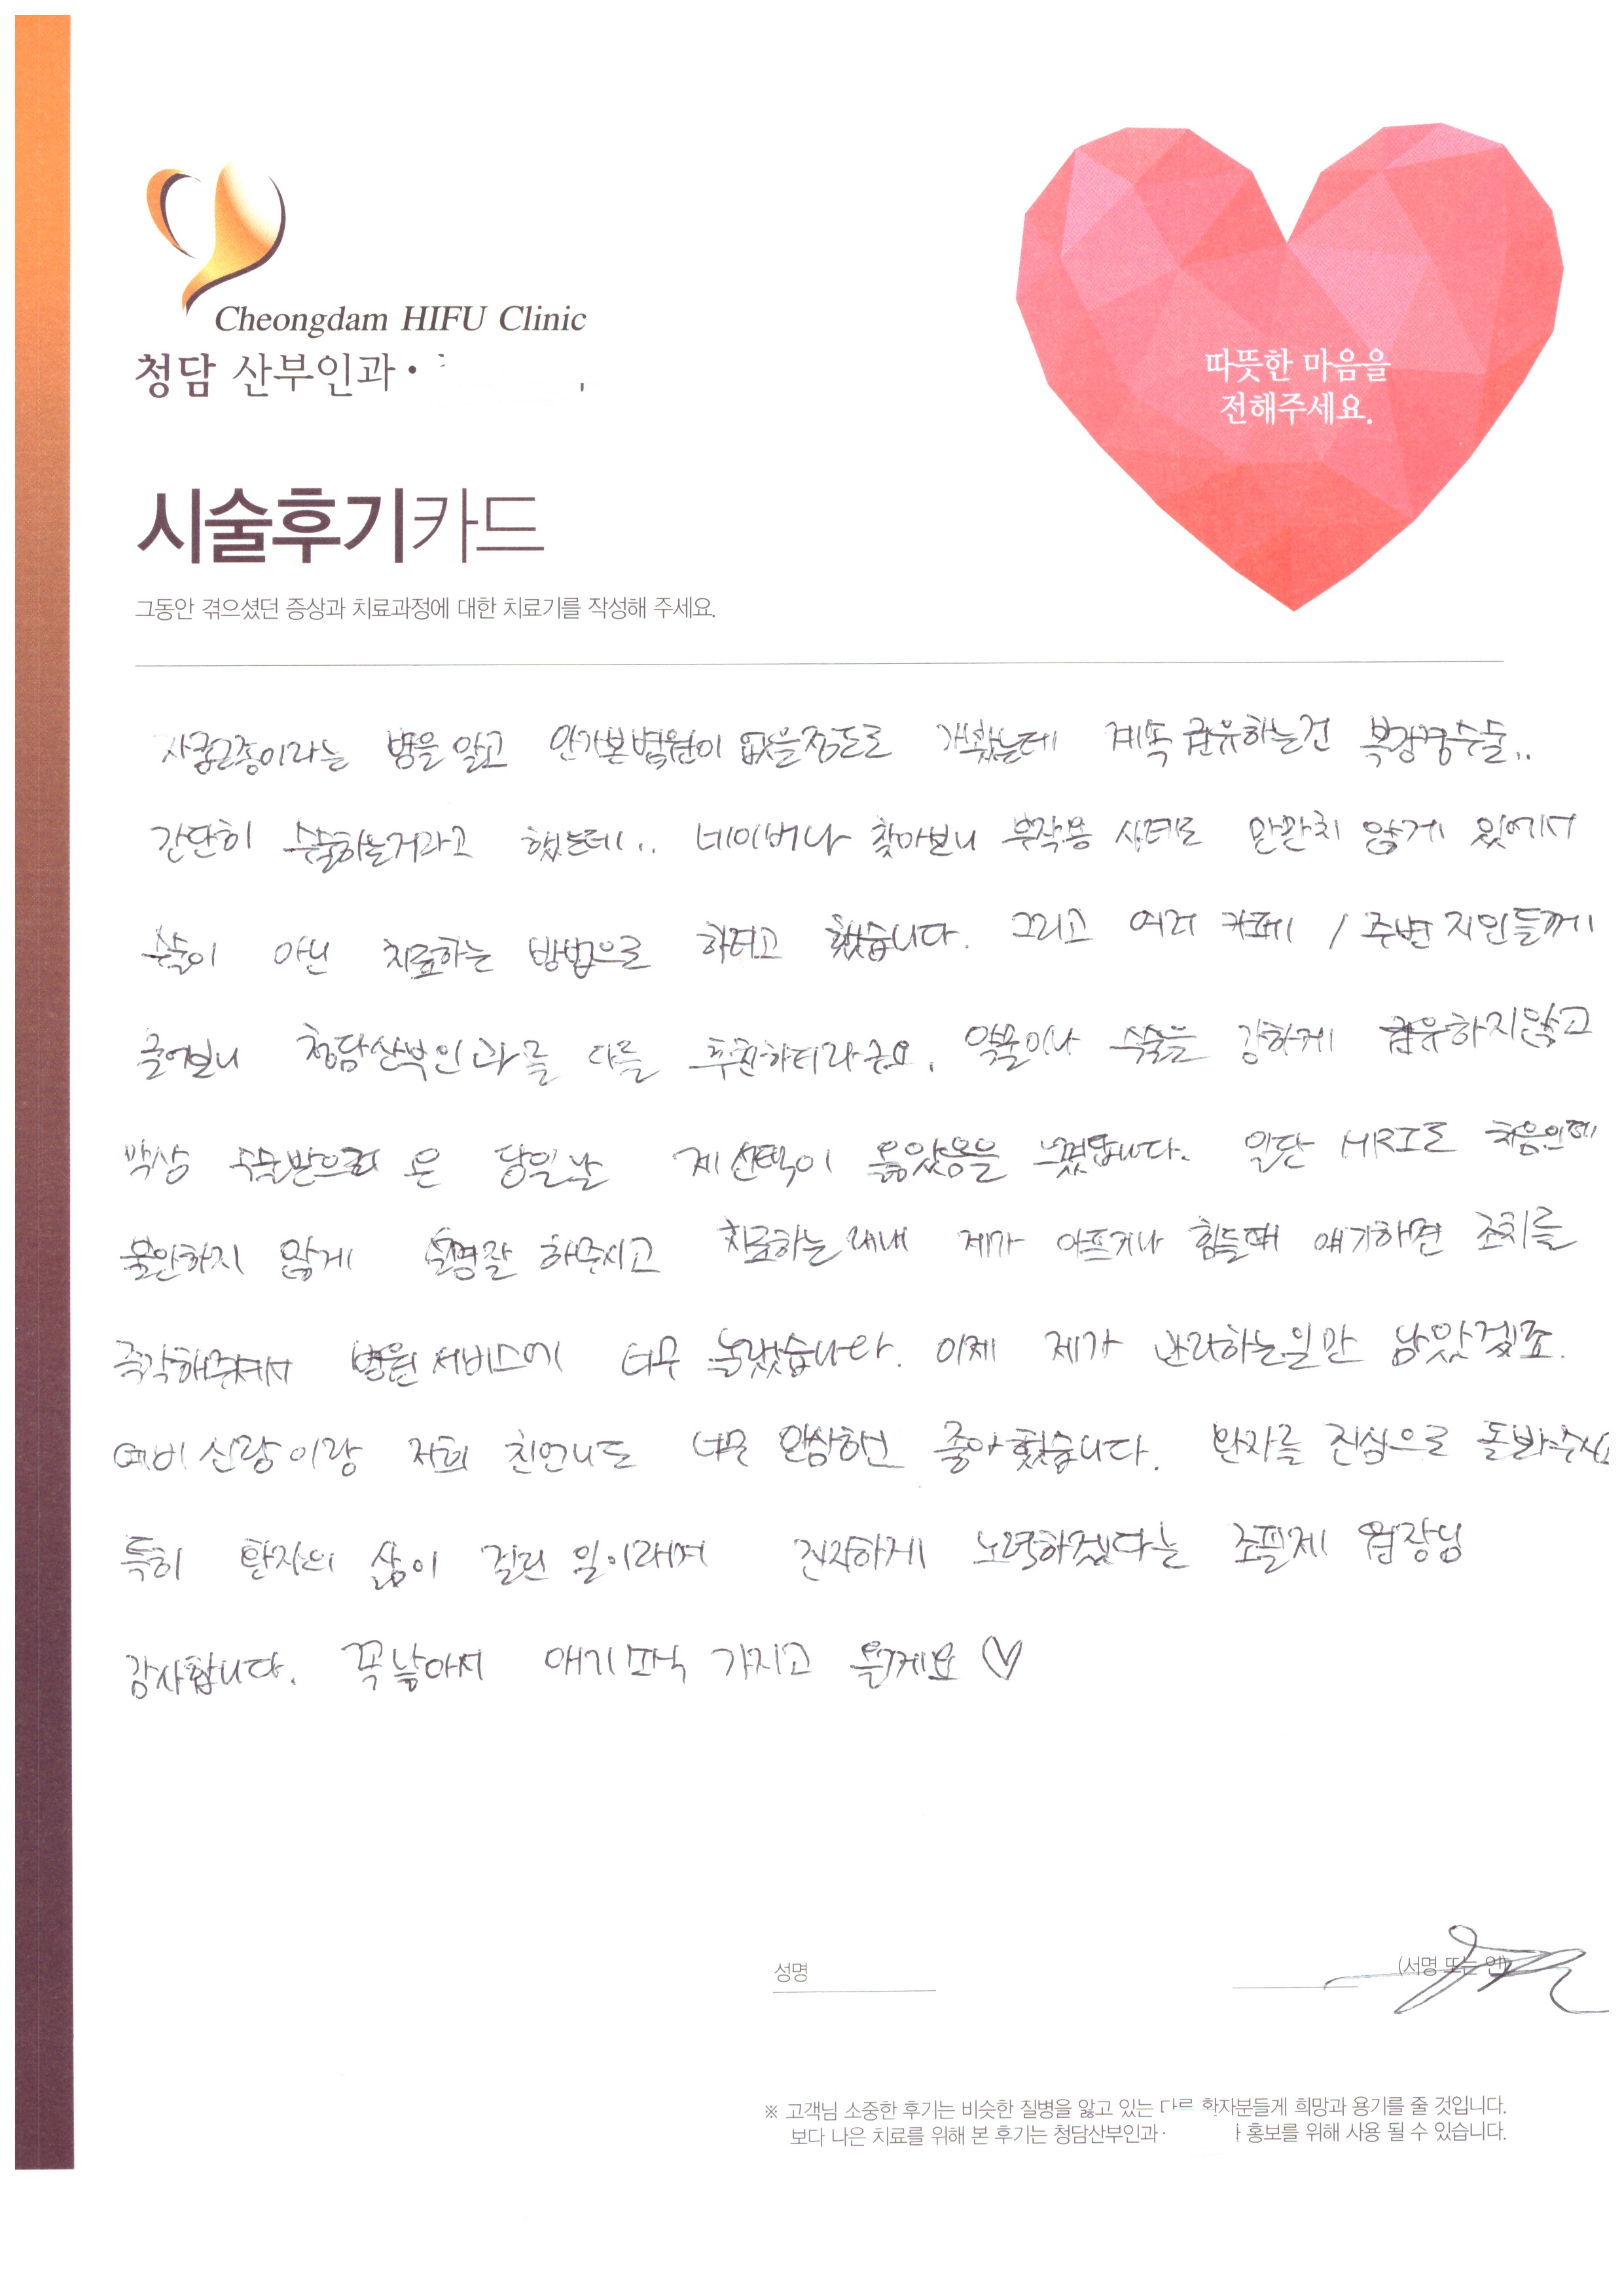 Cheongdam HIFU Clinic
청담 산부인과·
따뜻한 마음을
전해주세요.
시술후기카드
그동안 겪으셨던 증상과 치료과정에 대한 치료기를 작성해 주세요.
자궁근종이라는 병을 알고 안가본병원이 없을정도로 가봤는데 계속 권유하는건 복강경수술..
간단히 수술하는거라고 했는데.. 네이버나 찾아보니 부작용 사례도 만만치 않게 있에서
수술이 아닌 치료하는 방법으로 하려고 했습니다. 그리고 여러 카페 / 주변 지인들께
물어보니 청담산부인과를 다들 추천하더라구요. 약물이나 수술을 강하게 권유하지않고
막상 수술받으러 온 당일날 제 선택이 옳았음을 느꼈답니다. 일단 MRI도 처음인데
불안하지 않게 설명잘 해주시고 치료하는내내 제가 아프거나 힘들때 얘기하면 조치를
즉각해주셔서 병원 서비스에 너무 놀랐습니다. 이제 제가 관리하는일만 남았겠죠.
예비 신랑이랑 저희 친언니도 너무 안심하고 좋아했습니다. 환자를 진심으로 돌봐주시고
특히 환자의 삶이 걸린 일이라며 진지하게 노력하겠다는 조필제 원장님
감사합니다. 꼭 낳아서 애기 가지고 올게요 ♡
성명
(서명 또는 인)
※ 고객님 소중한 후기는 비슷한 질병을 앓고 있는 다른 환자분들게 희망과 용기를 줄 것입니다.
보다 나은 치료를 위해 본 후기는 청담산부인과· 홍보를 위해 사용 될 수 있습니다.